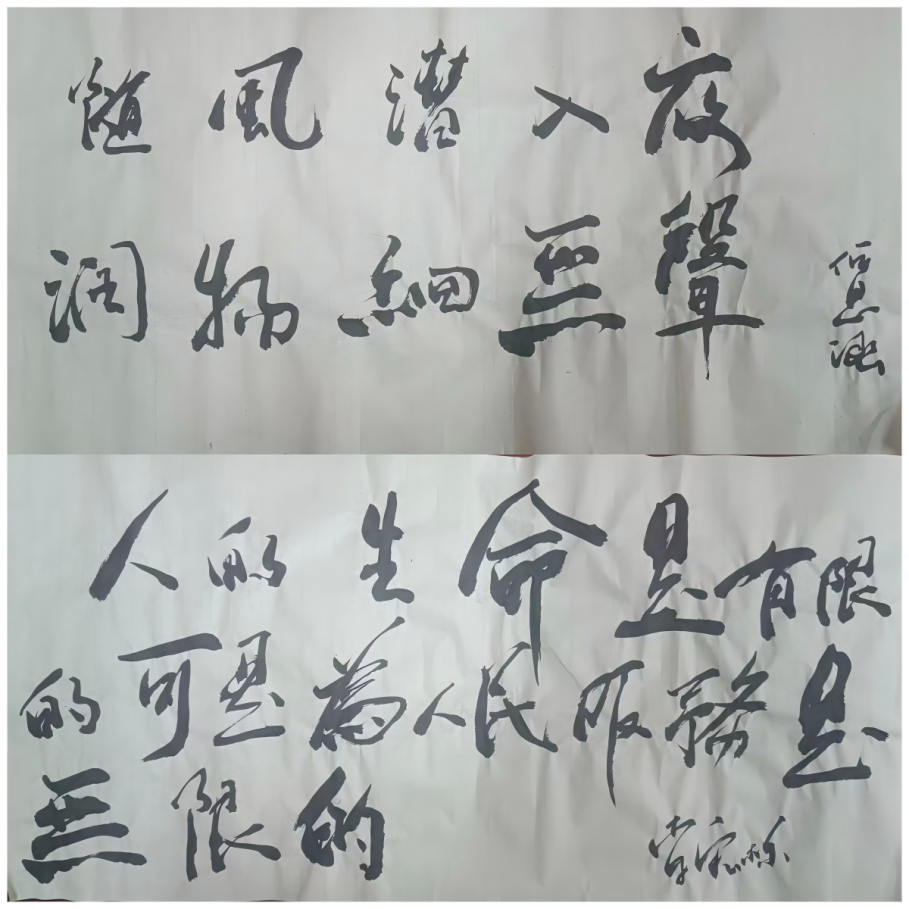 随風潛入夜
润物細無聲
人的生命是有限
的可是為人民服務是
無限的